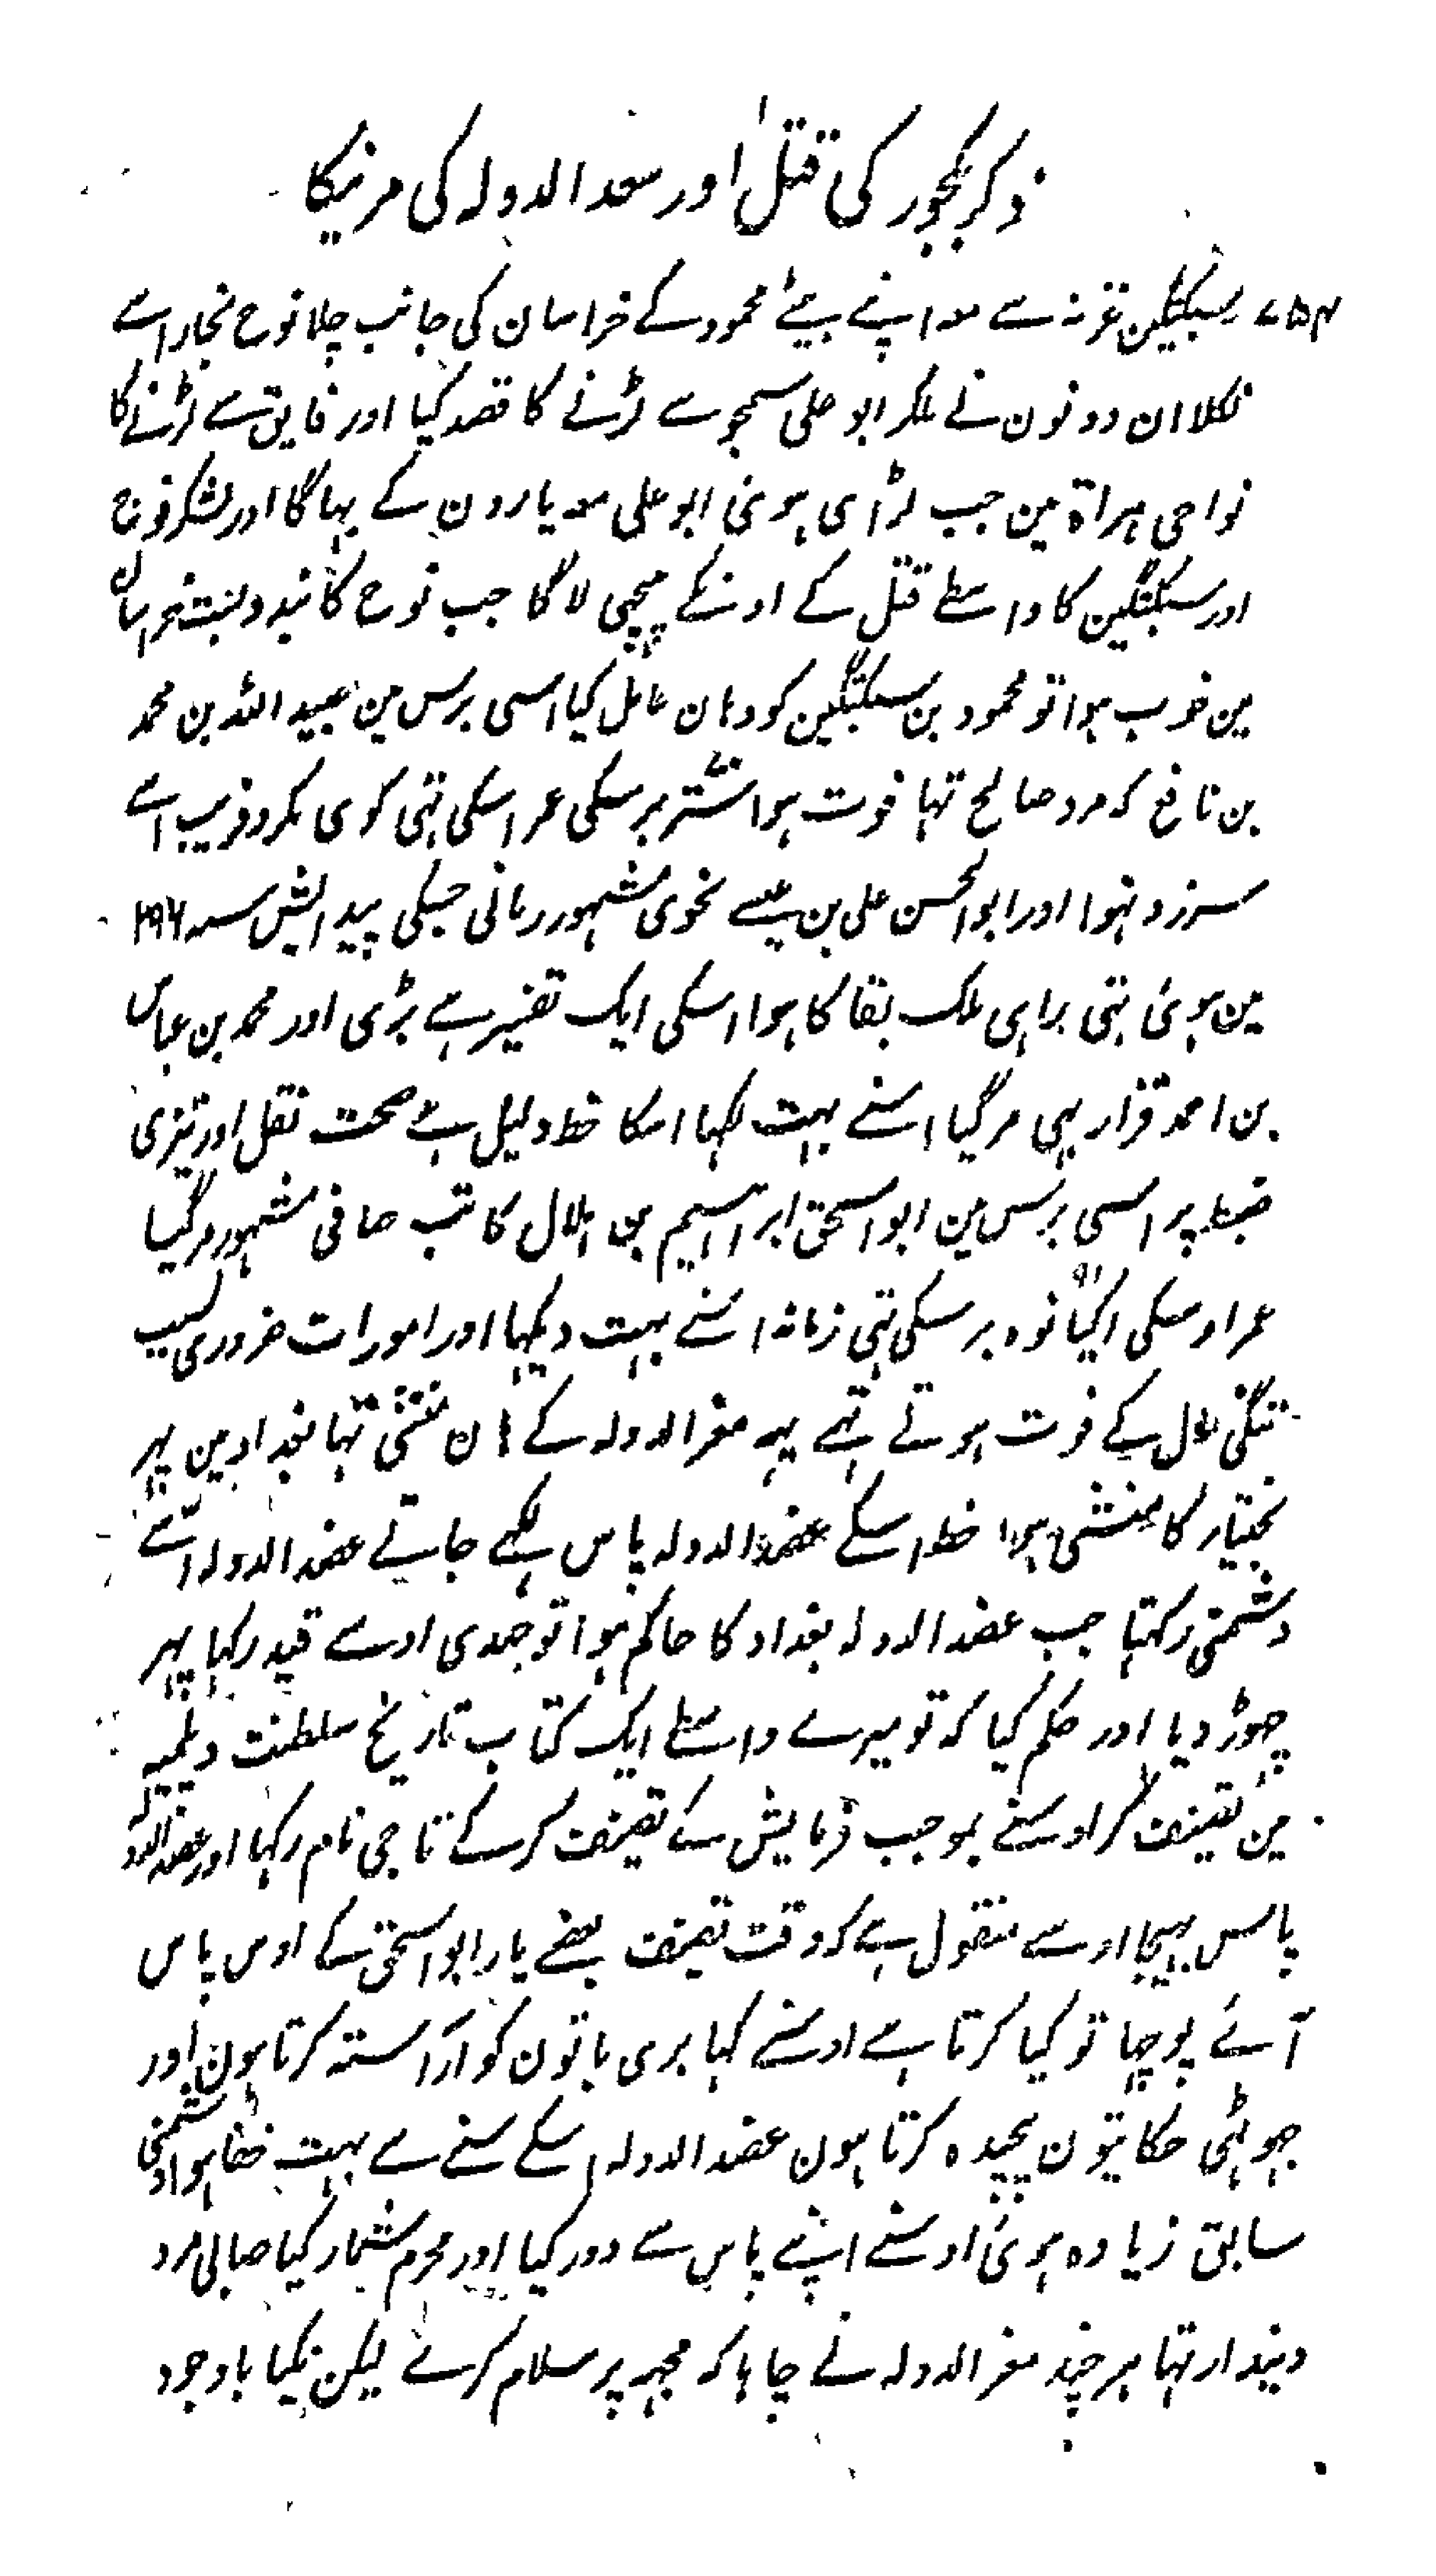 ذکر بکجور کی قتل اور سعد الدولہ کی مرنیکا
سبکتگین غزنہ سے معہ اپنے بیٹے محمود کے خراسان کی جانب چلا نوح بخارا سے
نکلا ان دونون نے ملکر ابو علی سمجو سے لڑنے کا قصد کیا اور فایق سے لڑنے کا
نواحی ہراۃ مین جب لڑای ہوئی ابو علی معہ یارون کے بہاگا اور لشکر نوح
اور سبکتگین کا واسطے قتل کے اونکے پیچہی لاگا جب نوح کا بندوبست خراسان
مین خوب ہوا تو محمود بن سبکتگین کو وہان عامل کیا اسی برس مین عبید اللہ بن محمد
بن نافع کہ مرد صالح تہا فوت ہوا ستتر برسکی عمر اسکی تہی کوی مکر و فریب اسے
سرزد نہوا اور ابو الحسن علی بن عیسے نحوی مشہور رمانی جسکی پیدایش سنہ ۲۹۶
مین ہوئی تہی راہی ملک بقا کا ہوا اسکی ایک تفسیر ہے بڑی اور محمد بن عباس
بن احمد قزار بہی مر گیا اسنے بہت لکہا اسکا خط دلیل ہے صحت نقل اور تیزی
ضبط پر اسی برس مین ابو اسحق ابراہیم بن ہلال کاتب صافی مشہور مر گیا
عمر اوسکی اکیانوہ ۹۱ برسکی تہی زمانہ اسنے بہت دیکہا اور امورات ضروری بسبب
تنگی مال کے فوت ہوتے تہے پہر معز الدولہ کے ہان منشی تہا بغداد مین پہر
بختیار کا منشی ہوا خط اسکے عضد الدولہ پاس لکہے جاتے عضد الدولہ اسے
دشمنی رکہتا جب عضد الدولہ بغداد کا حاکم ہوا تو جلدی اوسے قید رکہا پہر
چہوڑ دیا اور حکم کیا کہ تو میرے واسطے ایک کتاب تاریخ سلطنت دیلمیہ
مین تصنیف کر اوسنے بموجب فرمایش کے تصنیف کر کے تاجی نام رکہا اور عضد الدولہ
پاس بہیجا اوسے منقول ہے کہ وقت تصنیف بعضے یار ابو اسحق کے اوس پاس
آئے پوچہا تو کیا کرتا ہے اوسنے کہا بری باتون کو آراستہ کرتا ہون اور
جہوٹہی حکایتون پیچیدہ کرتا ہون عضد الدولہ اسکے سنے سے بہت خفا ہوا دشمنی
سابق زیادہ ہوئی اوسنے اپنے پاس سے دور کیا اور محرم شمار کیا صابی مرد
دیندار تہا ہر چند معز الدولہ نے چاہا کہ مجہہ پر سلام کرے لیکن نکیا باوجود